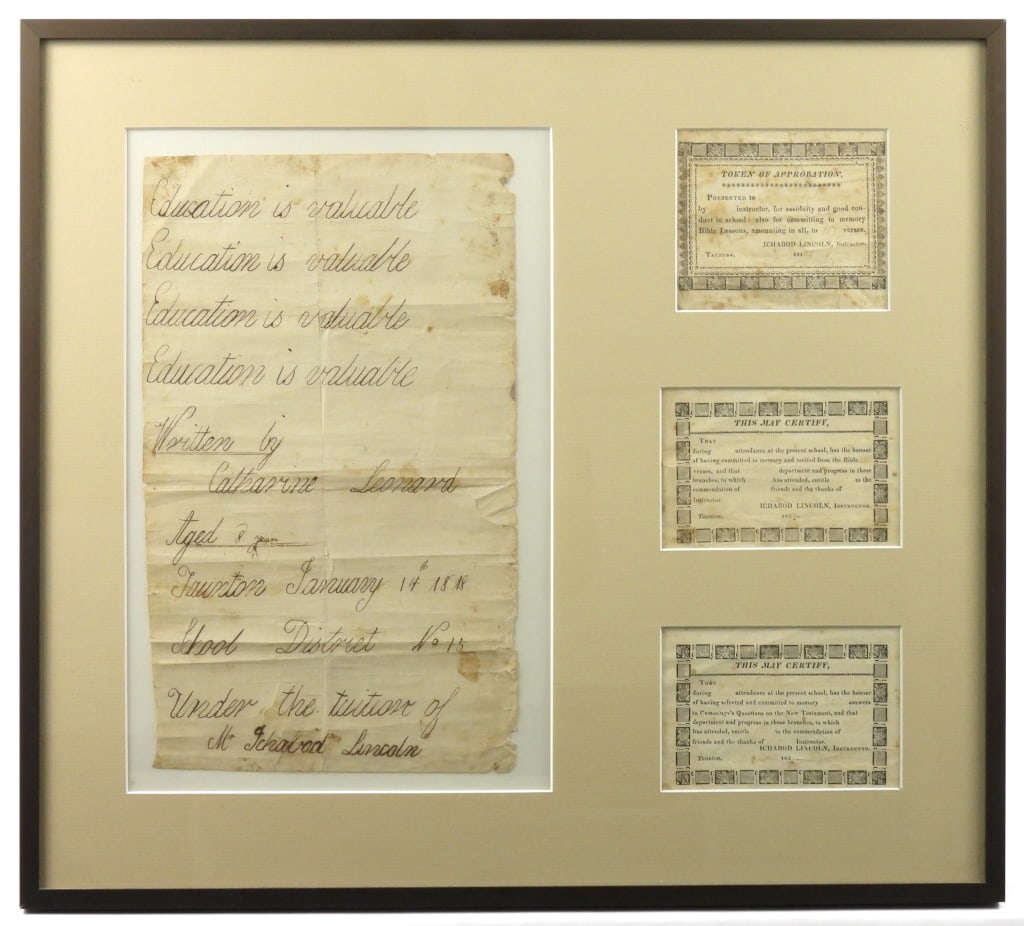 Education is valuable
Education is valuable
Education is valuable
Education is valuable
Written by
Catharine Leonard
Aged 8 years
Taunton January 14th 1818
School District No 15
Under the tuition of
Mr Ichabod Lincoln
TOKEN OF APPROBATION,
PRESENTED to
by instructor, for assiduity and good con-
duct in school: also for committing to memory
Bible Lessons, amounting in all, to verses.
ICHABOD LINCOLN, Instructor.
TAUNTON, 181
THIS MAY CERTIFY,
THAT
during attendance at the present school, has the honour
of having committed to memory and recited from the Bible
verses, and that department and progress in those
branches, to which has attended, entitle to the
commendation of friends and the thanks of
Instructor.
ICHABOD LINCOLN, INSTRUCTOR.
TAUNTON, 182
THIS MAY CERTIFY,
THAT
during attendance at the present school, has the honour
of having selected and committed to memory answers
to Cummings's Questions on the New Testament, and that
department and progress in those branches, to which
has attended, entitle to the commendation of
friends and the thanks of Instructor.
ICHABOD LINCOLN, INSTRUCTOR.
TAUNTON, 182